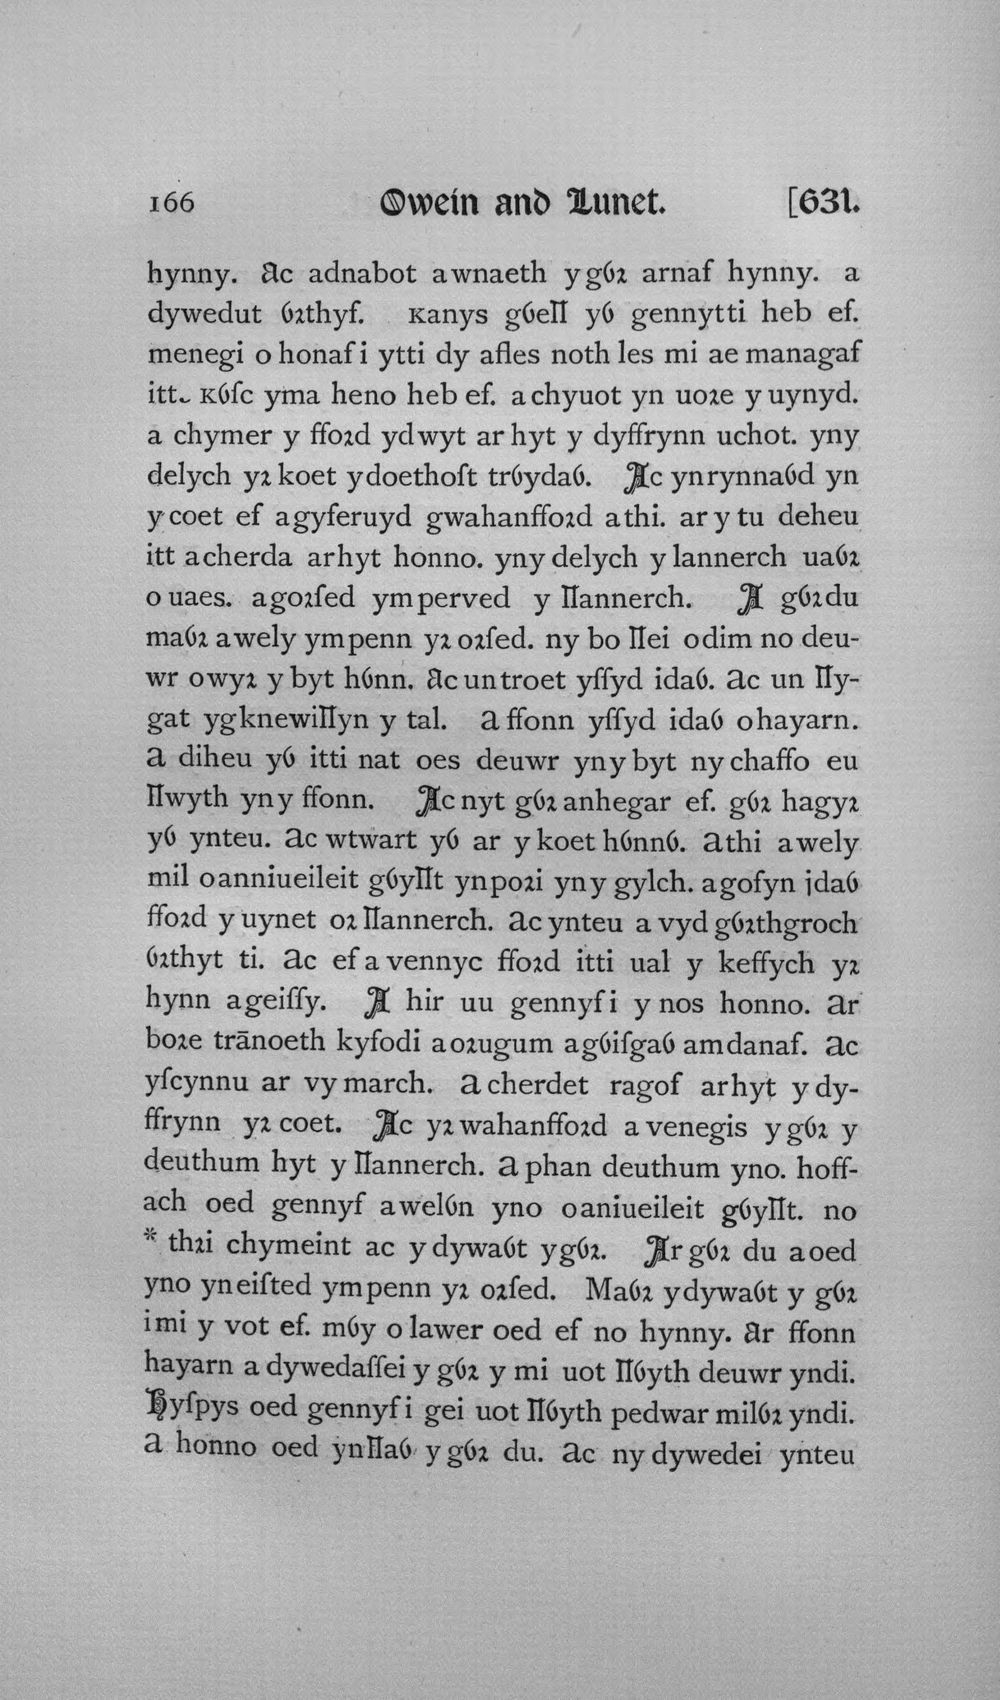 166 Owein and Lunet. [631.
hynny. Ac adnabot awnaeth y gỽꝛ arnaf hynny. a
dywedut ỽꝛthyf. Kanys gỽeỻ yỽ gennytti heb ef.
menegi o honaf i ytti dy afles noth les mi ae managaf
itt. Kỽſc yma heno heb ef. achyuot yn uoꝛe y uynyd.
a chymer y ffoꝛd ydwyt ar hyt y dyffrynn uchot. yny
delych yꝛ koet ydoethoſt trỽydaỽ. Ac ynrynnaỽd yn
y coet ef agyferuyd gwahanffoꝛd athi. ar y tu deheu
itt acherda arhyt honno. yny delych y lannerch uaỽꝛ
o uaes. agoꝛſed ymperved y ỻannerch. A gỽꝛdu
maỽꝛ awely ympenn yꝛ oꝛſed. ny bo ỻei odim no deu-
wr owyꝛ y byt hỽnn. Ac untroet yſſyd idaỽ. ac un ỻy-
gat ygknewiỻyn y tal. a ffonn yſſyd idaỽ ohayarn.
a diheu yỽ itti nat oes deuwr yny byt ny chaffo eu
ỻwyth yny ffonn. Ac nyt gỽꝛ anhegar ef. gỽꝛ hagyꝛ
yỽ ynteu. ac wtwart yỽ ar y koet hỽnnỽ. athi awely
mil oanniueileit gỽyỻt ynpoꝛi yny gylch. agofyn jdaỽ
ffoꝛd y uynet oꝛ ỻannerch. ac ynteu a vyd gỽꝛthgroch
ỽꝛthyt ti. ac ef a vennyc ffoꝛd itti ual y keffych yꝛ
hynn ageiſſy. A hir uu gennyf i y nos honno. ar
boꝛe trānoeth kyfodi aoꝛugum agỽiſgaỽ amdanaf. ac
yſcynnu ar vy march. a cherdet ragof arhyt y dy-
ffrynn yꝛ coet. Ac yꝛ wahanffoꝛd a venegis y gỽꝛ y
deuthum hyt y ỻannerch. a phan deuthum yno. hoff-
ach oed gennyf awelỽn yno oaniueileit gỽyỻt. no
* thꝛi chymeint ac y dywaỽt y gỽꝛ. Ar gỽꝛ du aoed
yno yneiſted ympenn yꝛ oꝛſed. Maỽꝛ ydywaỽt y gỽꝛ
imi y vot ef. mỽy o lawer oed ef no hynny. Ar ffonn
hayarn a dywedaſſei y gỽꝛ y mi uot ỻỽyth deuwr yndi.
Hyſpys oed gennyf i gei uot ỻỽyth pedwar milỽꝛ yndi.
a honno oed ynỻaỽ y gỽꝛ du. ac ny dywedei ynteu